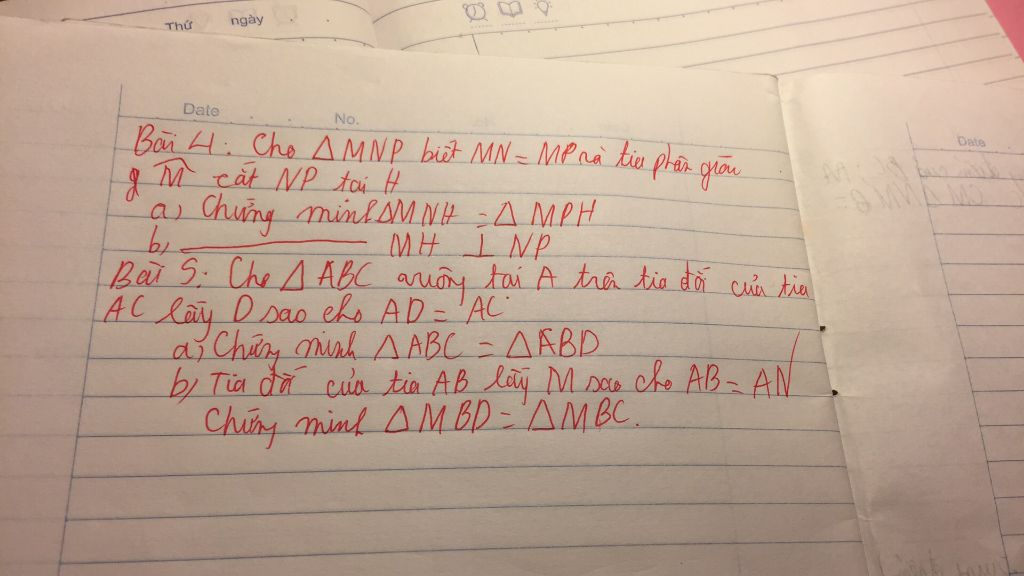 Thứ ngày
Date No.
Date
Bài 4: Cho △MNP biết MN = MP và tia phân giác
g M̂ cắt NP tại H
a) Chứng minh △MNH = △MPH
b) ——— MH ⊥ NP
Bài 5: Cho △ABC vuông tại A trên tia đối của tia
AC lấy D sao cho AD = AC
a) Chứng minh △ABC = △ABD
b) Tia đối của tia AB lấy M sao cho AB = AM
Chứng minh △MBD = △MBC.